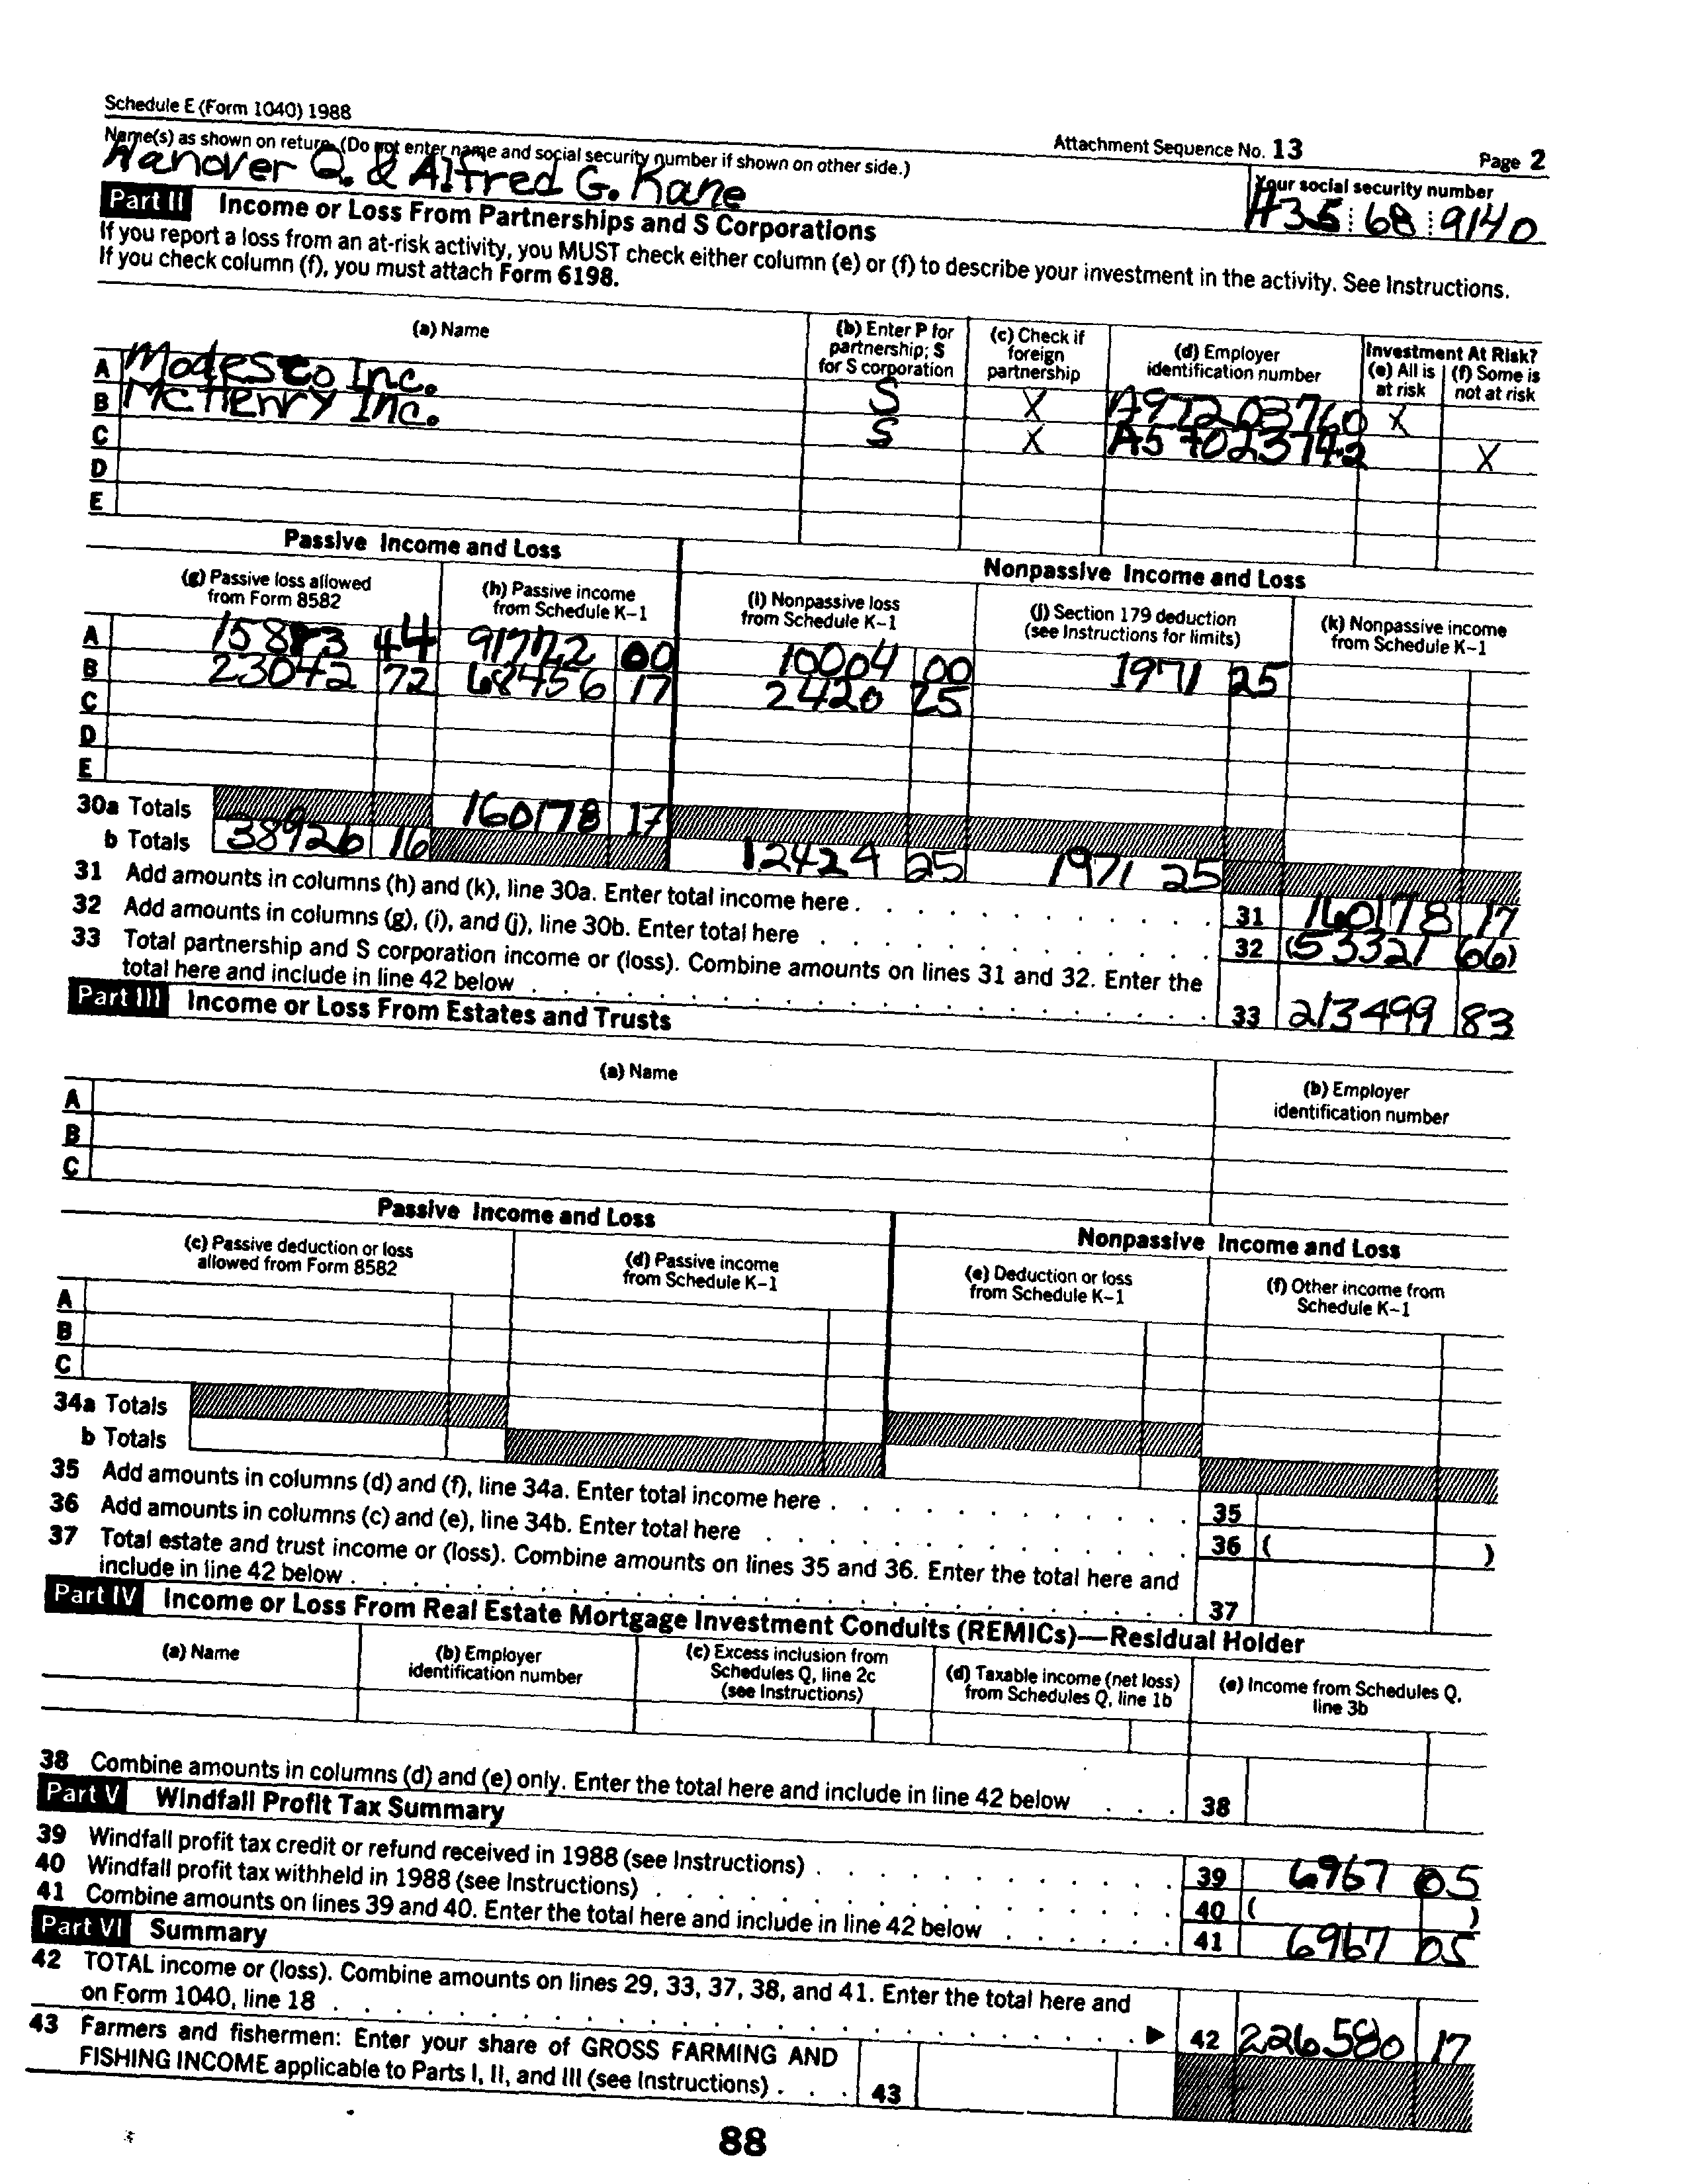 Schedule E (Form 1040) 1988
Attachment Sequence No. 13
Page 2
Name(s) as shown on return. (Do not enter name and social security number if shown on other side.)
Your social security number
Hanover Q. & Alfred G. Kane
68 9140
Part II Income or Loss From Partnerships and S Corporations
If you report a loss from an at-risk activity, you MUST check either column (e) or (f) to describe your investment in the activity. See Instructions.
If you check column (f), you must attach Form 6198.
(a) Name
(b) Enter P for partnership; S for S corporation
(c) Check if foreign partnership
(d) Employer identification number
Investment At Risk?
(e) All is at risk
(f) Some is not at risk
A Modesco Inc. S X A97203760 X
B McHenry Inc. S X A57023742 X
C
D
E
Passive Income and Loss
Nonpassive Income and Loss
(g) Passive loss allowed from Form 8582
(h) Passive income from Schedule K-1
(i) Nonpassive loss from Schedule K-1
(j) Section 179 deduction (see Instructions for limits)
(k) Nonpassive income from Schedule K-1
A 15883 44 91722 00 10004 00 1971 25
B 23042 72 68456 17 2420 25
C
D
E
30a Totals 160178 17
b Totals 38926 16 12424 25 1971 25
31 Add amounts in columns (h) and (k), line 30a. Enter total income here . 31 160178 17
32 Add amounts in columns (g), (i), and (j), line 30b. Enter total here 32 (53321 66)
33 Total partnership and S corporation income or (loss). Combine amounts on lines 31 and 32. Enter the
total here and include in line 42 below 33 213499 83
Part III Income or Loss From Estates and Trusts
(a) Name
(b) Employer identification number
A
B
C
Passive Income and Loss
Nonpassive Income and Loss
(c) Passive deduction or loss allowed from Form 8582
(d) Passive income from Schedule K-1
(e) Deduction or loss from Schedule K-1
(f) Other income from Schedule K-1
A
B
C
34a Totals
b Totals
35 Add amounts in columns (d) and (f), line 34a. Enter total income here . 35
36 Add amounts in columns (c) and (e), line 34b. Enter total here 36 ( )
37 Total estate and trust income or (loss). Combine amounts on lines 35 and 36. Enter the total here and
include in line 42 below . 37
Part IV Income or Loss From Real Estate Mortgage Investment Conduits (REMICs)—Residual Holder
(a) Name
(b) Employer identification number
(c) Excess inclusion from Schedules Q, line 2c (see Instructions)
(d) Taxable income (net loss) from Schedules Q, line 1b
(e) Income from Schedules Q, line 3b
38 Combine amounts in columns (d) and (e) only. Enter the total here and include in line 42 below . . . 38
Part V Windfall Profit Tax Summary
39 Windfall profit tax credit or refund received in 1988 (see Instructions) . 39 6967 05
40 Windfall profit tax withheld in 1988 (see Instructions) 40 ( )
41 Combine amounts on lines 39 and 40. Enter the total here and include in line 42 below 41 6967 05
Part VI Summary
42 TOTAL income or (loss). Combine amounts on lines 29, 33, 37, 38, and 41. Enter the total here and
on Form 1040, line 18 ▶ 42 226580 17
43 Farmers and fishermen: Enter your share of GROSS FARMING AND
FISHING INCOME applicable to Parts I, II, and III (see Instructions) . . . 43
88